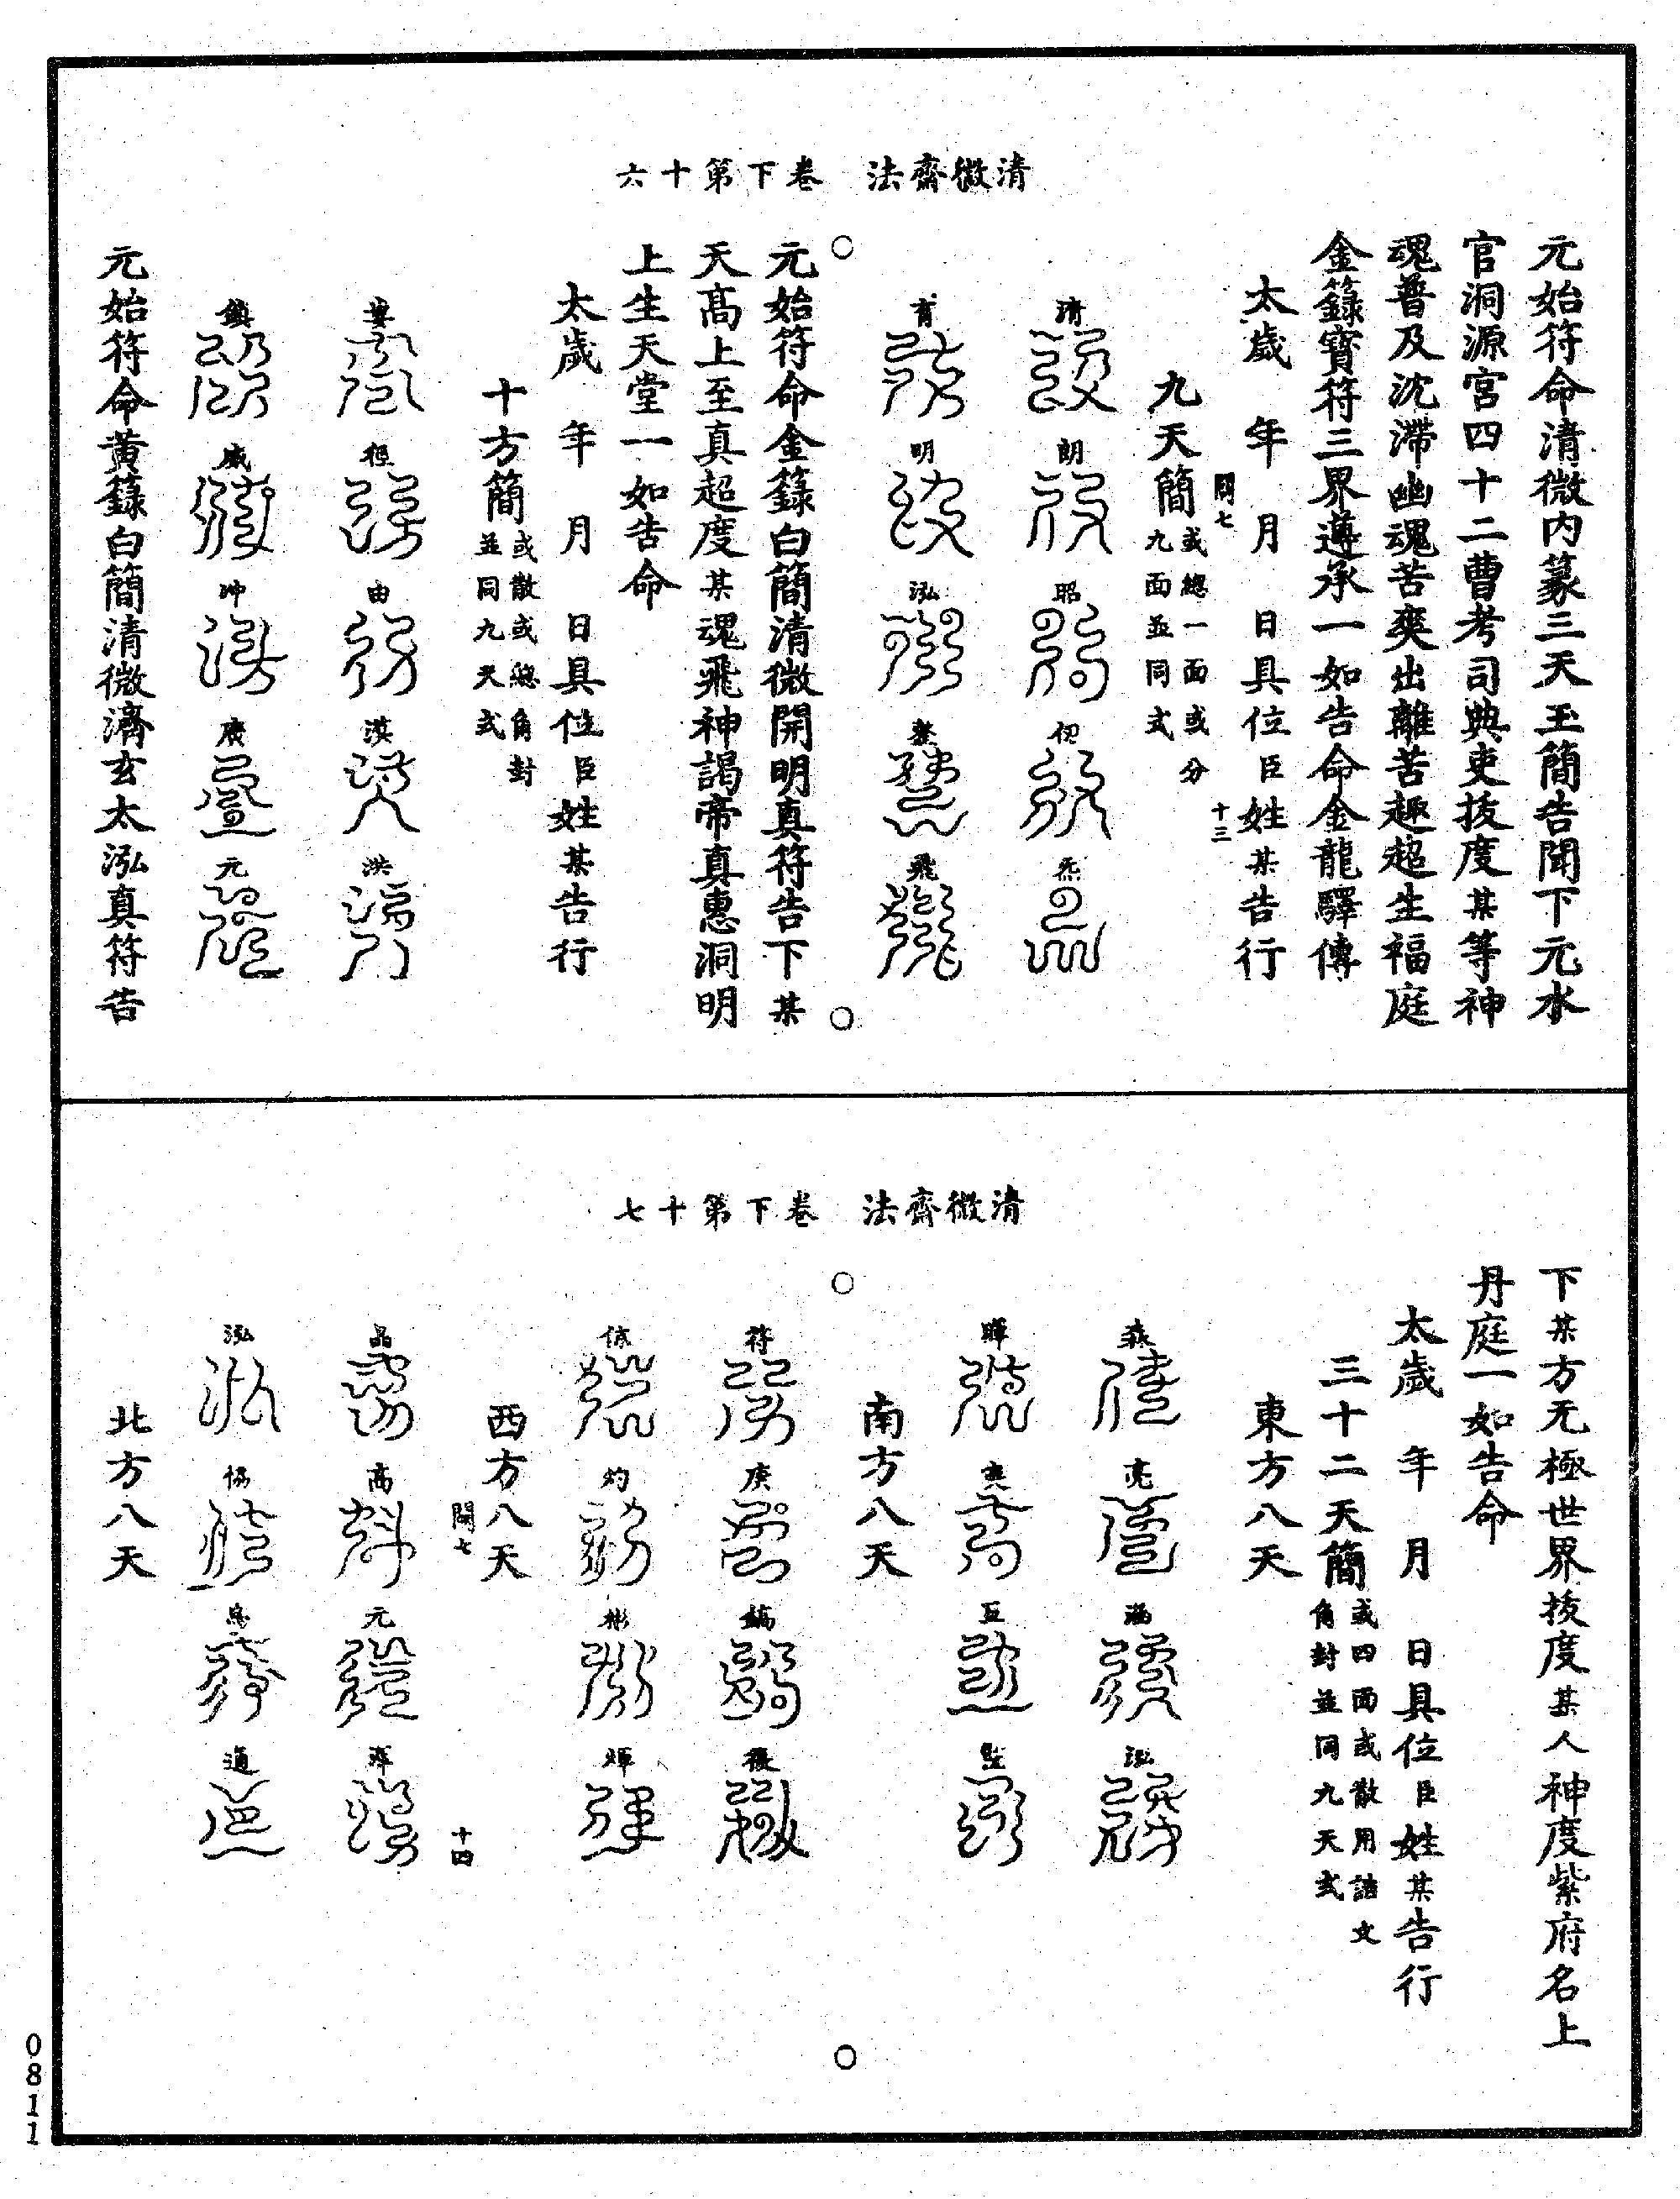 清微齋法　卷下第十六
元始符命清微内篆三天玉簡告聞下元水
官洞源宮四十二曹考司典吏拔度某等神
魂普及沈滯幽魂苦爽出離苦趣超生福庭
金籙寶符三界遵承一如告命金龍驛傳
太歲　年　月　日具位臣姓某告行
闕七　十三
九天簡
或總一面或分
九面並同式
清　朗　昭　仞　炁
育　明　泓　泰　飛
元始符命金籙白簡清微開明真符告下某
天高上至真超度某魂飛神謁帝真惠洞明
上生天堂一如告命
太歲　年　月　日具位臣姓某告行
十方簡
或散或總角封
並同九天式
由　漠　洪
鎮　威　沖　廣　元
元始符命黃籙白簡清微濟玄太泓真符告
清微齋法　卷下第十七
下某方无極世界拔度某人神度紫府名上
丹庭一如告命
太歲　年　月　日具位臣姓某告行
三十二天簡
或四面或散用誥文
角封並同九天式
東方八天
森　亮　泓
暉　亘
南方八天
符　庚
灼　彬　輝
西方八天
闕七　十四
晶　高　元
泓　協　通
北方八天
0811